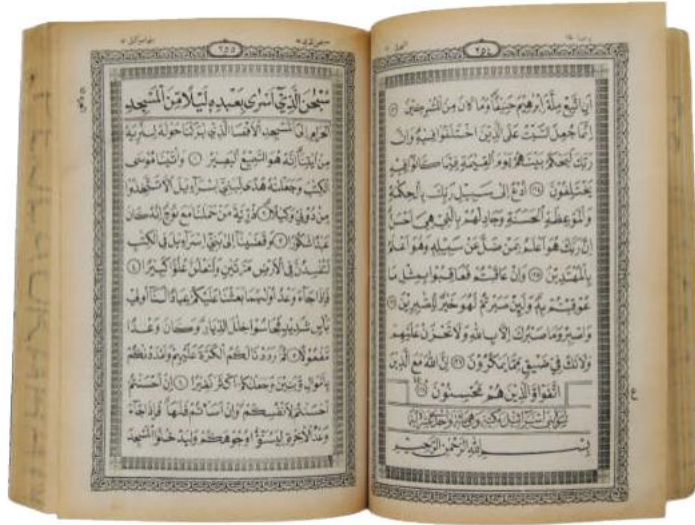 ٢٥٤
اَنِ اتَّبِعْ مِلَّةَ اِبْرٰهِيْمَ حَنِيْفًا وَمَا كَانَ مِنَ الْمُشْرِكِيْنَ
اِنَّمَا جُعِلَ السَّبْتُ عَلَى الَّذِيْنَ اخْتَلَفُوْا فِيْهِ وَاِنَّ
رَبَّكَ لَيَحْكُمُ بَيْنَهُمْ يَوْمَ الْقِيٰمَةِ فِيْمَا كَانُوْا فِيْهِ
يَخْتَلِفُوْنَ اُدْعُ اِلٰى سَبِيْلِ رَبِّكَ بِالْحِكْمَةِ
وَالْمَوْعِظَةِ الْحَسَنَةِ وَجَادِلْهُمْ بِالَّتِيْ هِيَ اَحْسَنُ
اِنَّ رَبَّكَ هُوَ اَعْلَمُ بِمَنْ ضَلَّ عَنْ سَبِيْلِهٖ وَهُوَ اَعْلَمُ
بِالْمُهْتَدِيْنَ وَاِنْ عَاقَبْتُمْ فَعَاقِبُوْا بِمِثْلِ مَا
عُوْقِبْتُمْ بِهٖ وَلَئِنْ صَبَرْتُمْ لَهُوَ خَيْرٌ لِّلصّٰبِرِيْنَ
وَاصْبِرْ وَمَا صَبْرُكَ اِلَّا بِاللّٰهِ وَلَا تَحْزَنْ عَلَيْهِمْ
وَلَا تَكُ فِيْ ضَيْقٍ مِّمَّا يَمْكُرُوْنَ اِنَّ اللّٰهَ مَعَ الَّذِيْنَ
اتَّقَوْا وَّالَّذِيْنَ هُمْ مُّحْسِنُوْنَ
ع
بِسْمِ اللّٰهِ الرَّحْمٰنِ الرَّحِيْمِ
٢٥٥
سُبْحٰنَ الَّذِيْ اَسْرٰى بِعَبْدِهٖ لَيْلًا مِّنَ الْمَسْجِدِ
الْحَرَامِ اِلَى الْمَسْجِدِ الْاَقْصَا الَّذِيْ بٰرَكْنَا حَوْلَهٗ لِنُرِيَهٗ
مِنْ اٰيٰتِنَا اِنَّهٗ هُوَ السَّمِيْعُ الْبَصِيْرُ وَاٰتَيْنَا مُوْسَى
الْكِتٰبَ وَجَعَلْنٰهُ هُدًى لِّبَنِيْ اِسْرَآءِيْلَ اَلَّا تَتَّخِذُوْا
مِنْ دُوْنِيْ وَكِيْلًا ذُرِّيَّةَ مَنْ حَمَلْنَا مَعَ نُوْحٍ اِنَّهٗ كَانَ
عَبْدًا شَكُوْرًا وَقَضَيْنَا اِلٰى بَنِيْ اِسْرَآءِيْلَ فِي الْكِتٰبِ
لَتُفْسِدُنَّ فِي الْاَرْضِ مَرَّتَيْنِ وَلَتَعْلُنَّ عُلُوًّا كَبِيْرًا
فَاِذَا جَآءَ وَعْدُ اُوْلٰىهُمَا بَعَثْنَا عَلَيْكُمْ عِبَادًا لَّنَا اُولِيْ
بَاْسٍ شَدِيْدٍ فَجَاسُوْا خِلٰلَ الدِّيَارِ وَكَانَ وَعْدًا
مَّفْعُوْلًا ثُمَّ رَدَدْنَا لَكُمُ الْكَرَّةَ عَلَيْهِمْ وَاَمْدَدْنٰكُمْ
بِاَمْوَالٍ وَّبَنِيْنَ وَجَعَلْنٰكُمْ اَكْثَرَ نَفِيْرًا اِنْ اَحْسَنْتُمْ
اَحْسَنْتُمْ لِاَنْفُسِكُمْ وَاِنْ اَسَاْتُمْ فَلَهَا فَاِذَا جَآءَ
وَعْدُ الْاٰخِرَةِ لِيَسُوْٓءُوْا وُجُوْهَكُمْ وَلِيَدْخُلُوا الْمَسْجِدَ